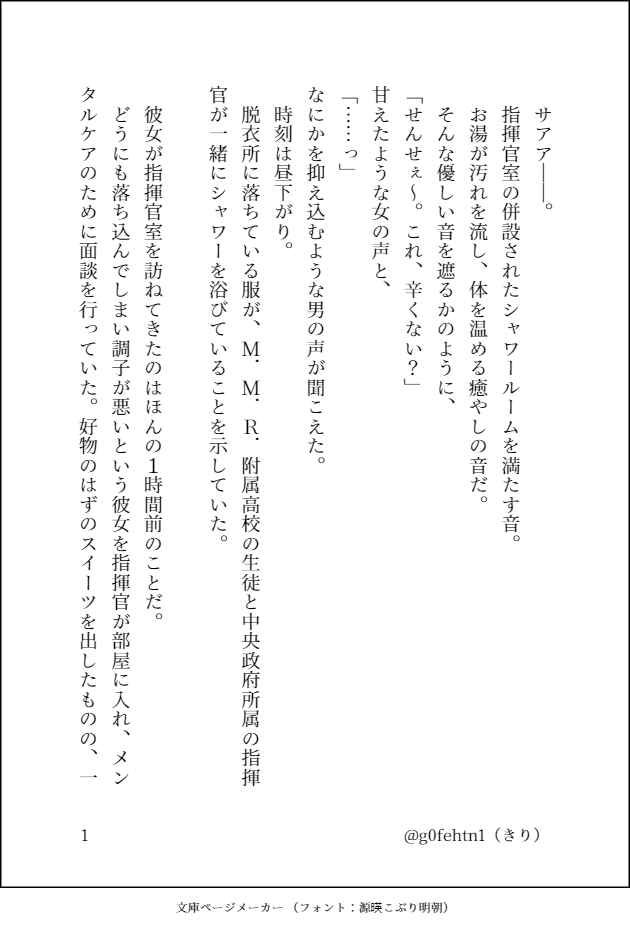 サアア――。
指揮官室の併設されたシャワールームを満たす音。
お湯が汚れを流し、体を温める癒やしの音だ。
そんな優しい音を遮るかのように、
「せんせぇ～。これ、辛くない？」
甘えたような女の声と、
「……っ」
なにかを抑え込むような男の声が聞こえた。
時刻は昼下がり。
脱衣所に落ちている服が、Ｍ．Ｍ．Ｒ．附属高校の生徒と中央政府所属の指揮
官が一緒にシャワーを浴びていることを示していた。
彼女が指揮官室を訪ねてきたのはほんの１時間前のことだ。
どうにも落ち込んでしまい調子が悪いという彼女を指揮官が部屋に入れ、メン
タルケアのために面談を行っていた。好物のはずのスイーツを出したものの、一
@g0fehtn1（きり）
1
文庫ページメーカー （フォント：源暎こぶり明朝）